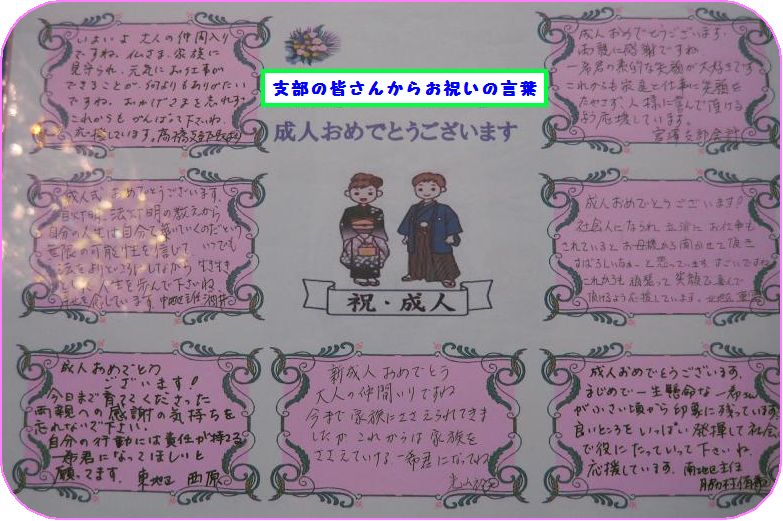 支部の皆さんからお祝いの言葉
成人おめでとうございます
祝・成人
いよいよ大人の仲間入り
ですね。仏さま、家族に
見守られ、元気にお仕事が
できることが何よりもありがたい
ですね。おかげさまを忘れず
これからもがんばって下さいね。
応援しています。高橋
成人おめでとうございます。
両親に感謝ですね
一希君の素的な笑顔が大好きです
これからも家庭と仕事に笑顔を
たやさず、人様に喜んで頂ける
よう応援しています。
支部会計
成人式おめでとうございます。
自灯明、法灯明の教えから
自分の人生は自分で築いていくのだという
無限の可能性を信じて、いつでも
法をよりどころにしながら生き生き
とした人生を歩んで下さいね。
応援しています 中地区主任 酒井
成人おめでとうございます!
社会人になられ、立派にお仕事も
されているとお母様から聞かせて頂き
すばらしいなぁ〜と思っています。すごいですね
これからも頑張って笑顔で喜んで
頂けるよう応援しています。北地区
成人おめでとう
ございます!
今日まで育ててくださった
両親への感謝の気持ちを
忘れないで下さい。
自分の行動には責任が持てる
一希君になってほしいと
願ってます。東地区 西原
新成人おめでとう
大人の仲間いりですね
今まで家族にささえられてきま
したが、これからは家族を
ささえていける一希君になってね
成人おめでとうございます。
まじめで一生懸命な一希くん
が小さい頃から印象に残っています。
良いところをいっぱい発揮して社会
で役にたっていって下さいね。
応援しています。南地区主任